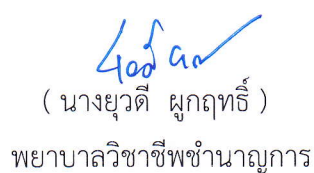 ( นางยุวดี ผูกฤทธิ์ )
พยาบาลวิชาชีพชำนาญการ